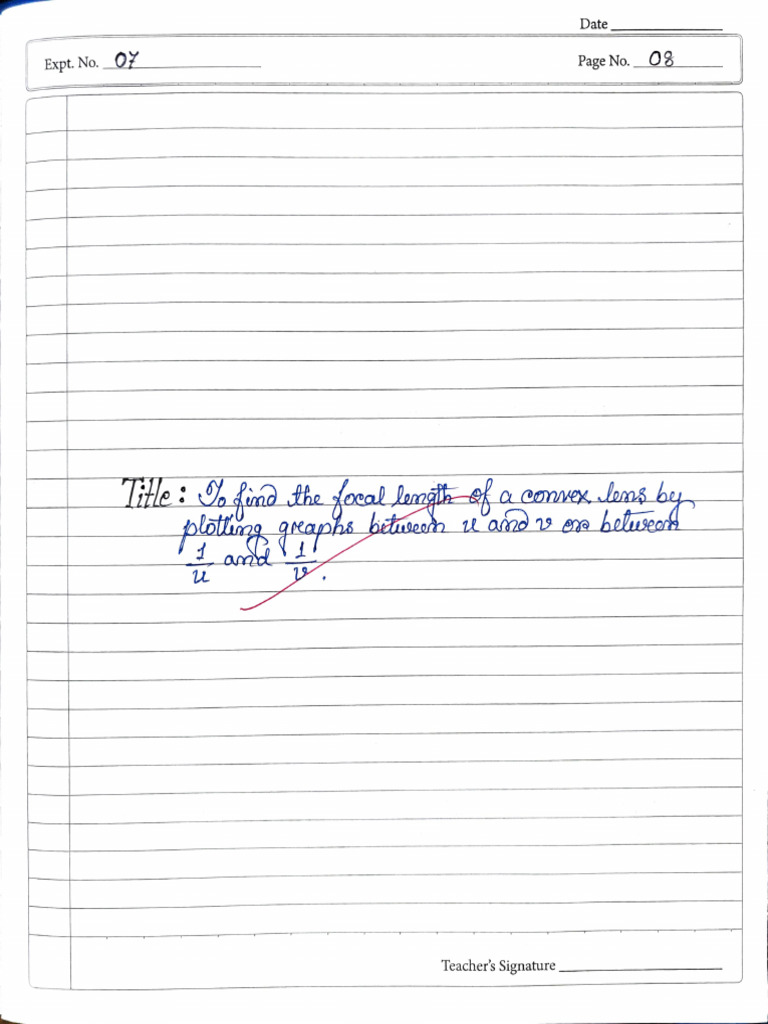 Date
Expt. No. 07
Page No. 08
Title: To find the focal length of a convex lens by
plotting graphs between u and v or between
1/u and 1/v.
Teacher's Signature